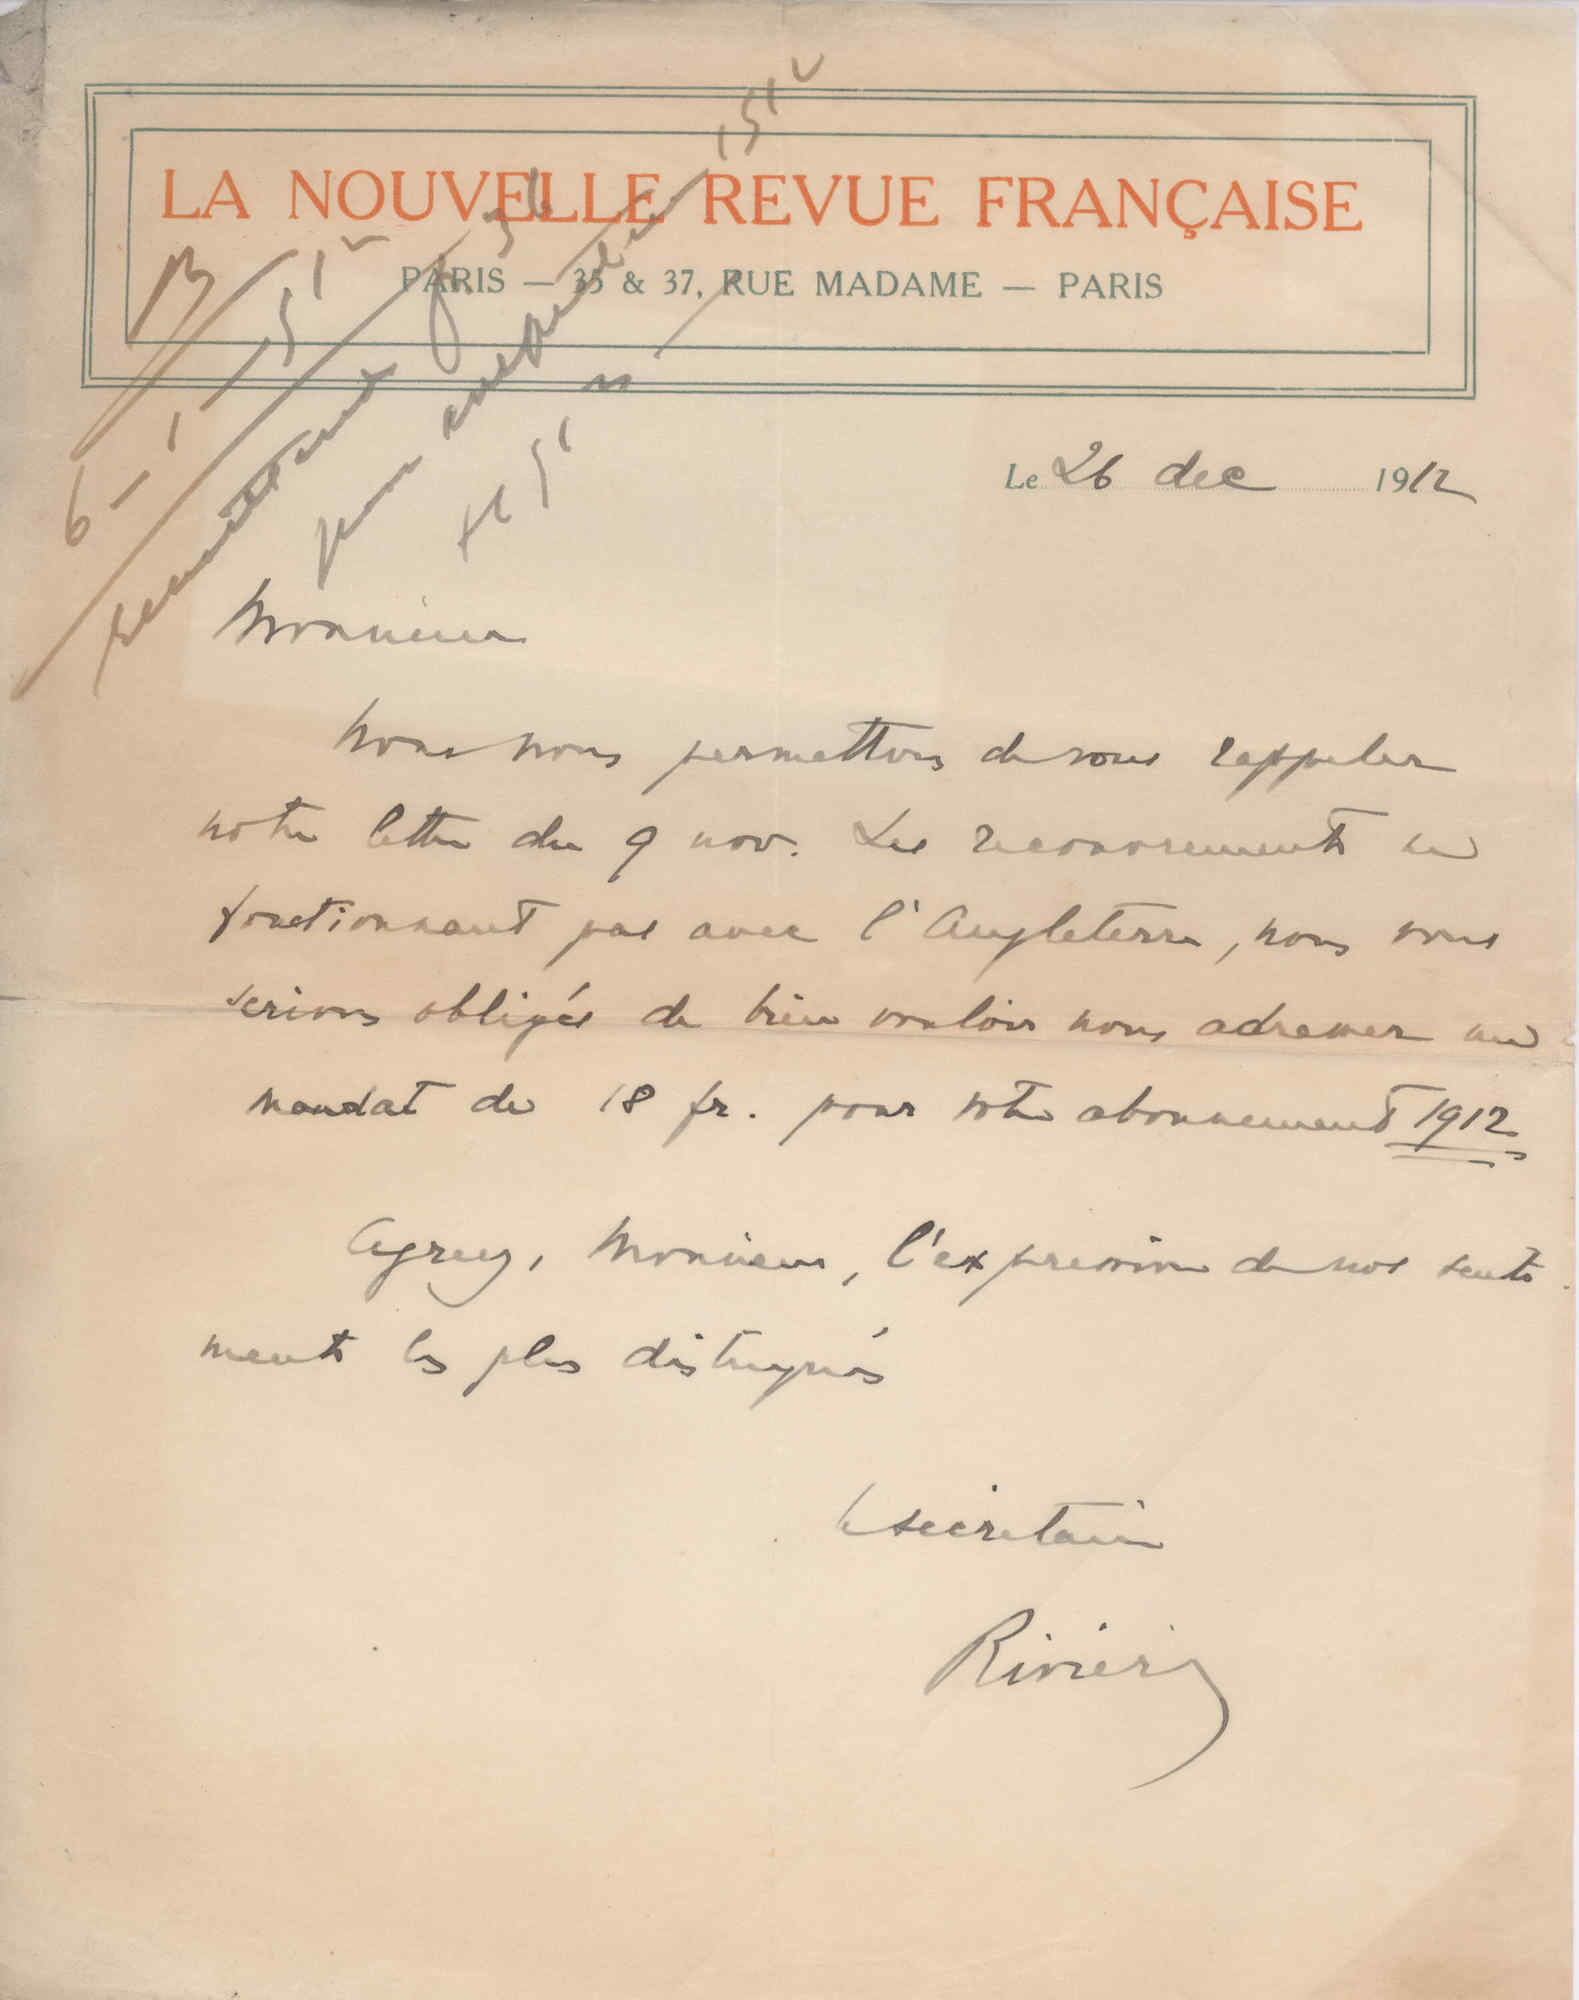 LA NOUVELLE REVUE FRANÇAISE
PARIS — 35 & 37, RUE MADAME — PARIS
Le 26 dec 1912
Monsieur
Nous nous permettons de vous rappeler
notre lettre du 9 nov. Les recouvrements ne
fonctionnant pas avec l'Angleterre, nous vous
serions obligés de bien vouloir nous adresser un
mandat de 18 fr. pour votre abonnement 1912
Agréez, Monsieur, l'expression de nos senti
ments les plus distingués
le secrétaire
Rivière